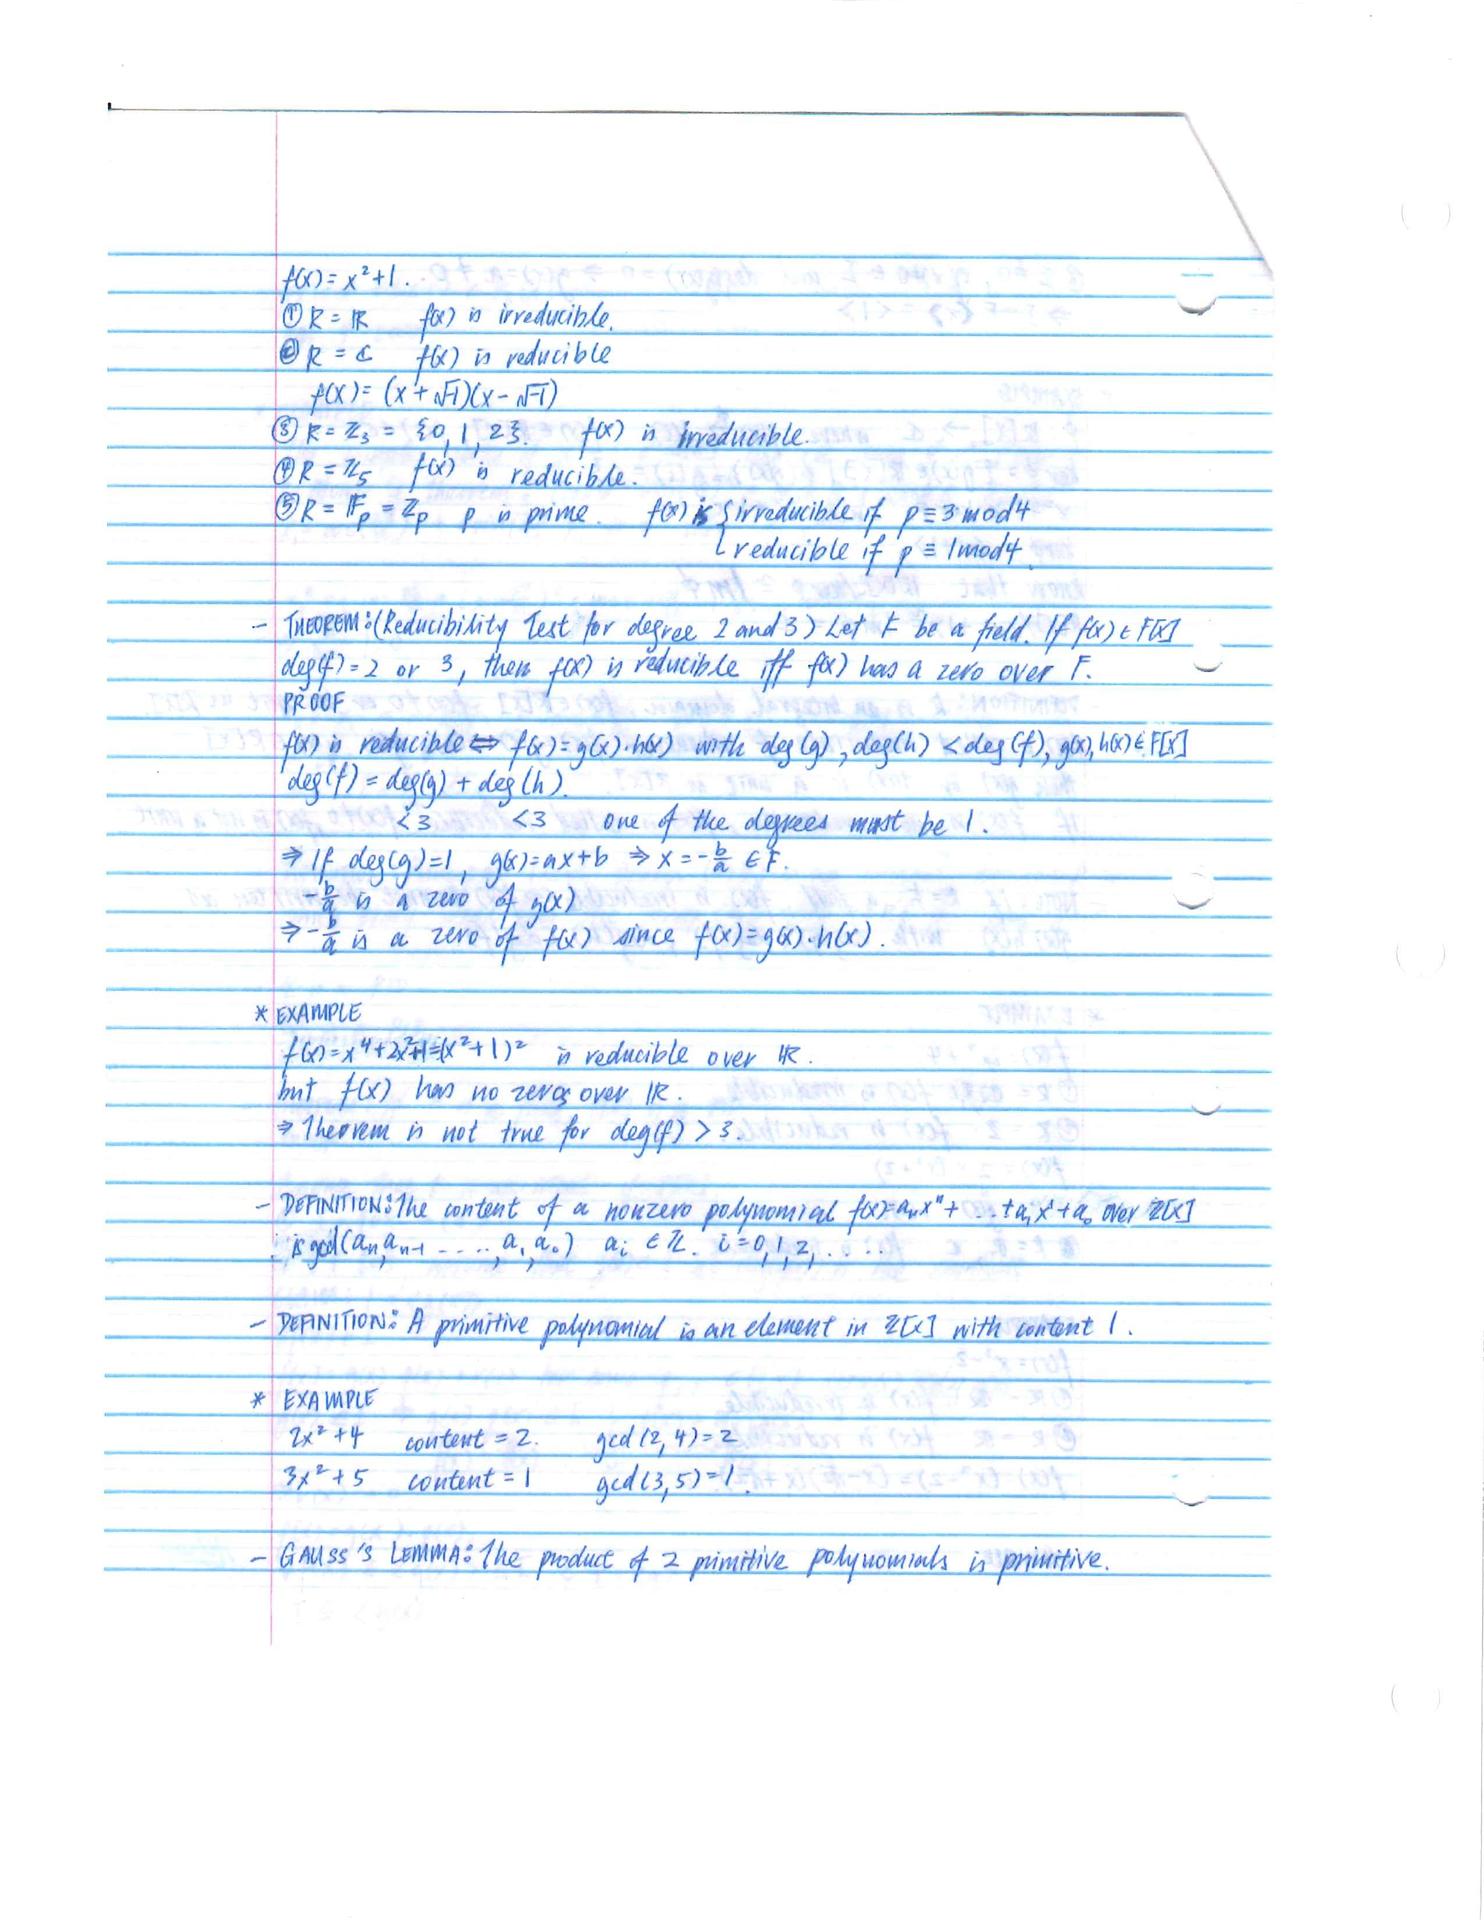 f(x) = x² + 1.
① R = ℝ f(x) is irreducible.
② R = ℂ f(x) is reducible
f(x) = (x + √-1)(x - √-1)
③ R = ℤ₃ = {0, 1, 2}. f(x) is irreducible.
④ R = ℤ₅ f(x) is reducible.
⑤ R = 𝔽p = ℤp p is prime. f(x) is { irreducible if p ≡ 3 mod 4
reducible if p ≡ 1 mod 4.
- THEOREM: (Reducibility Test for degree 2 and 3) Let F be a field. If f(x) ∈ F[x]
deg(f) = 2 or 3, then f(x) is reducible iff f(x) has a zero over F.
PROOF
f(x) is reducible ⇔ f(x) = g(x)·h(x) with deg(g), deg(h) < deg(f), g(x), h(x) ∈ F[x]
deg(f) = deg(g) + deg(h).
<3 <3 one of the degrees must be 1.
⇒ If deg(g) = 1, g(x) = ax + b ⇒ x = -b/a ∈ F.
-b/a is a zero of g(x)
⇒ -b/a is a zero of f(x) since f(x) = g(x)·h(x).
* EXAMPLE
f(x) = x⁴ + 2x² + 1 = (x² + 1)² is reducible over ℝ.
but f(x) has no zeros over ℝ.
⇒ Theorem is not true for deg(f) > 3.
- DEFINITION: The content of a nonzero polynomial f(x) = aₙxⁿ + ... + a₁x¹ + a₀ over ℤ[x]
is gcd(aₙ, aₙ₋₁ ....., a₁, a₀) aᵢ ∈ ℤ. i = 0, 1, 2, ....
- DEFINITION: A primitive polynomial is an element in ℤ[x] with content 1.
* EXAMPLE
2x² + 4 content = 2. gcd(2, 4) = 2
3x² + 5 content = 1 gcd(3, 5) = 1.
- GAUSS'S LEMMA: The product of 2 primitive polynomials is primitive.